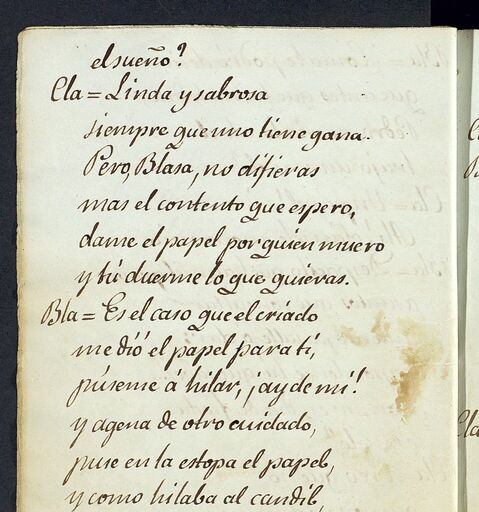 el sueño?
Cla = Linda y sabrosa
siempre que uno tiene gana.
Pero, Blasa, no difieras
mas el contento que espero,
dame el papel por quien muero
y tú duerme lo que quieras.
Bla = Es el caso que el criado
me dió el papel para tí,
púseme á hilar, ¡ay de mí!
y agena de otro cuidado,
puse en la estopa el papel,
y como hilaba al candil,